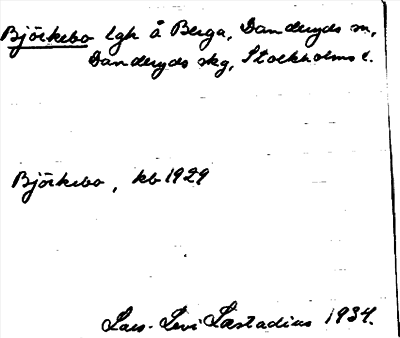 Björkebo lgh å Berga, Danderyds sn,
Danderyds skg, Stockholms l.
Björkebo, kb 1929
Lars-Levi Læstadius 1934.